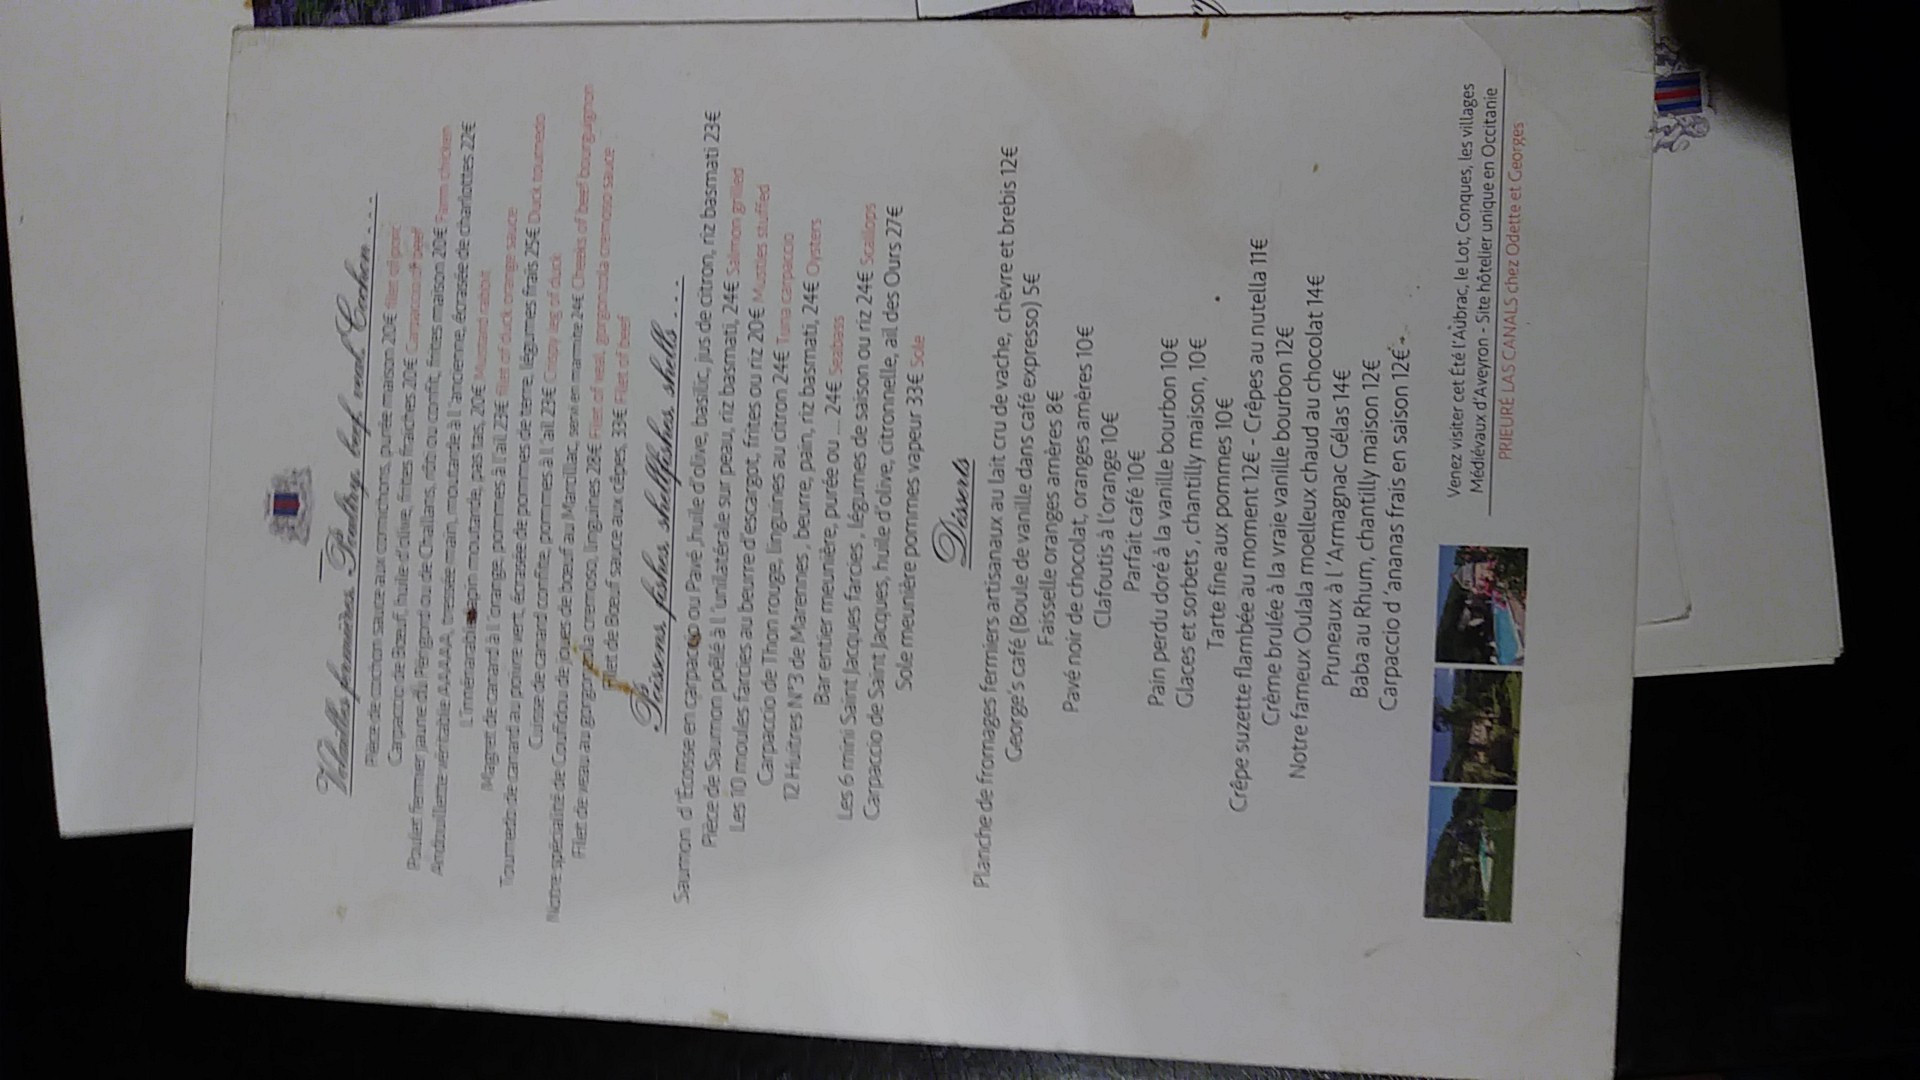 Volailles fermières, Poultry, beef, veal, Cochon . . . .
Pièce de cochon sauce aux cornichons, purée maison 20€ filet of porc
Carpaccio de Bœuf, huile d'olive, frites fraîches 20€ Carpaccio of beef
Poulet fermier jaune du Périgord ou de Challans, rôti ou confit, frites maison 20€ Farm chicken
Andouillette véritable AAAAA, tressée main, moutarde à l'ancienne, écrasée de charlottes 22€
L'inénarrable lapin moutarde, pas tas, 20€ Mustard rabbit
Magret de canard à l'orange, pommes à l'ail 23€ fillet of duck orange sauce
Tournedo de canard au poivre vert, écrasée de pommes de terre, légumes frais 25€ Duck tournedo
Cuisse de canard confite, pommes à l'ail 23€ Crispy leg of duck
Notre spécialité de Coufidou de joues de bœuf au Marcillac, servi en marmite 24€ Cheeks of beef bourguignon
Filet de veau au gorgonzola cremoso, linguines 28€ Filet of veal, gorgonzola cremoso sauce
Filet de Bœuf sauce aux cèpes, 33€ Filet of beef
Poissons, fishes, shellfishes, shells . . . .
Saumon d'Ecosse en carpaccio ou Pavé ,huile d'olive, basilic, jus de citron, riz basmati 23€
Pièce de Saumon poêlé à l'unilatérale sur peau, riz basmati, 24€ Salmon grilled
Les 10 moules farcies au beurre d'escargot, frites ou riz 20€ Mustles stuffed
Carpaccio de Thon rouge, linguines au citron 24€ Tuna carpaccio
12 Huitres N°3 de Marennes , beurre, pain, riz basmati, 24€ Oysters
Bar entier meunière, purée ou ... 24€ Seabass
Les 6 mini Saint Jacques farcies , légumes de saison ou riz 24€ Scallops
Carpaccio de Saint Jacques, huile d'olive, citronnelle, ail des Ours 27€
Sole meunière pommes vapeur 33€ Sole
Disserts
Planche de fromages fermiers artisanaux au lait cru de vache, chèvre et brebis 12€
George's café (Boule de vanille dans café expresso) 5€
Faisselle oranges amères 8€
Pavé noir de chocolat, oranges amères 10€
Clafoutis à l'orange 10€
Parfait café 10€
Pain perdu doré à la vanille bourbon 10€
Glaces et sorbets , chantilly maison, 10€
Tarte fine aux pommes 10€
Crêpe suzette flambée au moment 12€ - Crêpes au nutella 11€
Crème brulée à la vraie vanille bourbon 12€
Notre fameux Oulala moelleux chaud au chocolat 14€
Pruneaux à l'Armagnac Gélas 14€
Baba au Rhum, chantilly maison 12€
Carpaccio d'ananas frais en saison 12€
Venez visiter cet Été l'Aubrac, le Lot, Conques, les villages
Médiévaux d'Aveyron - Site hôtelier unique en Occitanie
PRIEURÉ LAS CANALS chez Odette et Georges